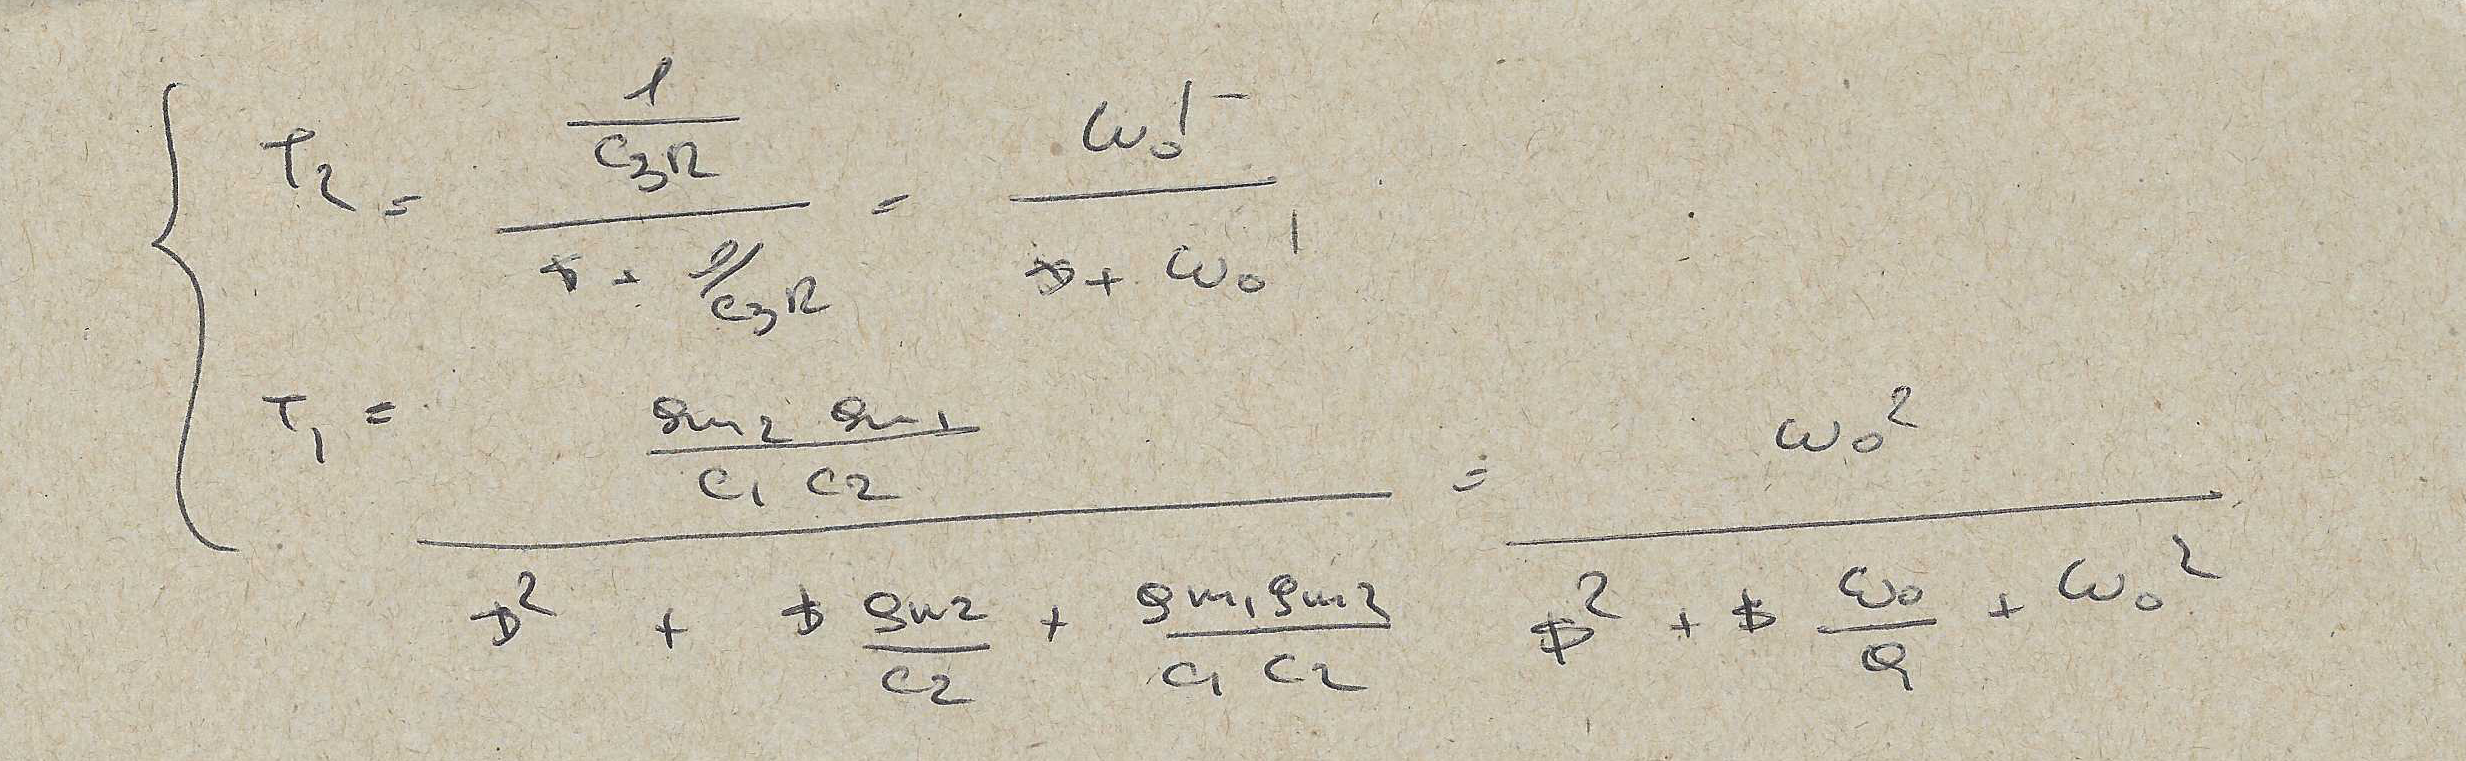 T₂ = (1/(C₃R)) / (s + 1/(C₃R)) = ω₀' / (s + ω₀')
T₁ = ((gm₂ gm₁)/(C₁ C₂)) / (s² + s (gm₂/C₂) + (gm₁ gm₂)/(C₁ C₂)) = ω₀² / (s² + s (ω₀/Q) + ω₀²)